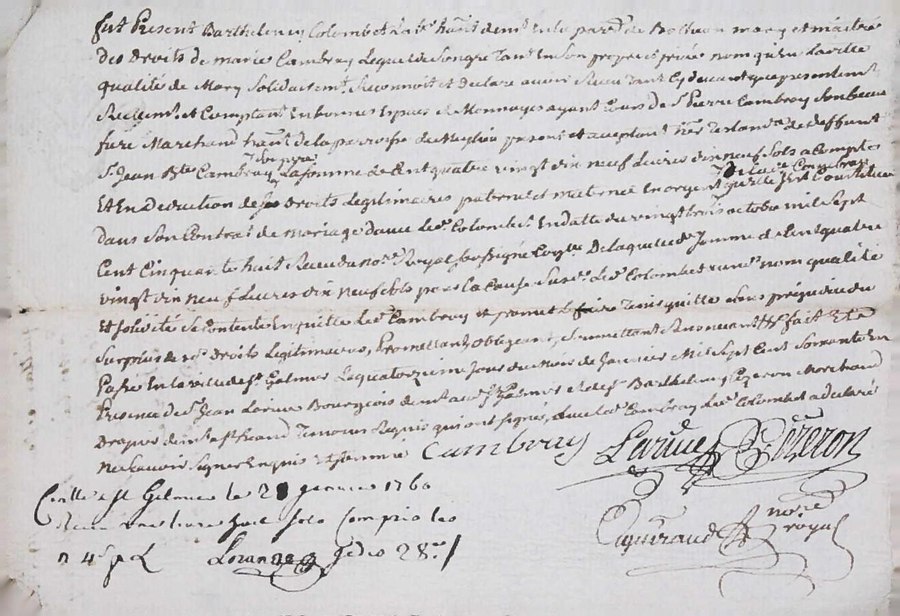 fut Present Barthelemy Colombet habt. demt. en la parsse. de Bothéon mary et maitre
des Droits de marie Cambray Lequel de Son gré Tant En Son propre et privé nom qu'en Laditte
qualité de Mary Solidairemt. Reconnoit et Déclare avoir Receu Tant Cy devant que présentemt.
Réellemt. et Comptant En bonnes Espèces et Monnoyes ayant Cours de Sr. Pierre Cambray Son beau
frère Marchand habt. de la parroisse de présent et acceptant hér. Testamre. de deffunt
Sr. Jean Bte. Cambray Son père La Somme de Cent quatre vingt dix neuf Livres dix neuf Sols a Compte
Et En Deduction des Droits Legitimaires paternel et maternel En argent de lad. Cambray quelle S'est Constituée
dans Son Contrat de Mariage avec led. Colombet En datte du vingt trois octobre mil Sept
Cent Cinquante huit Receu du nore. Royal Soussigné De laquelle de. Somme de Cent quatre
vingt dix neuf Livres dix neuf Sols pour la Cause Susd. led. Colombet auxd. nom qualité
Et Solidité Se Contente En quitte led. Cambray et promet Le faire Tenir quitte Sans préjudice du
Surplus desd. Droits Legitimaires, Promettant, obligeant, Soumettant, Renonçant &c. fait Et
Passé En la ville de St. Galmier Le quatorzième Jour du Mois de Janvier Mil Sept Cent Soixante En
Presence de Sr. Jean Larüe Bourgeois de St. Galmier et de Sr. Barthelemy Pezeron Marchand
Drapier de Témoins Requis qui ont Signés, avec led. Cambray led. Colombet a déclaré
ne Sçavoir Signer Enquis et Sommé Cambray Larüe B. Pezeron
Conllé a St Galmier le 28 janvier 1760
Receu huit Sols Compris les
n 4s. p L
Peyeiraud nore. royal